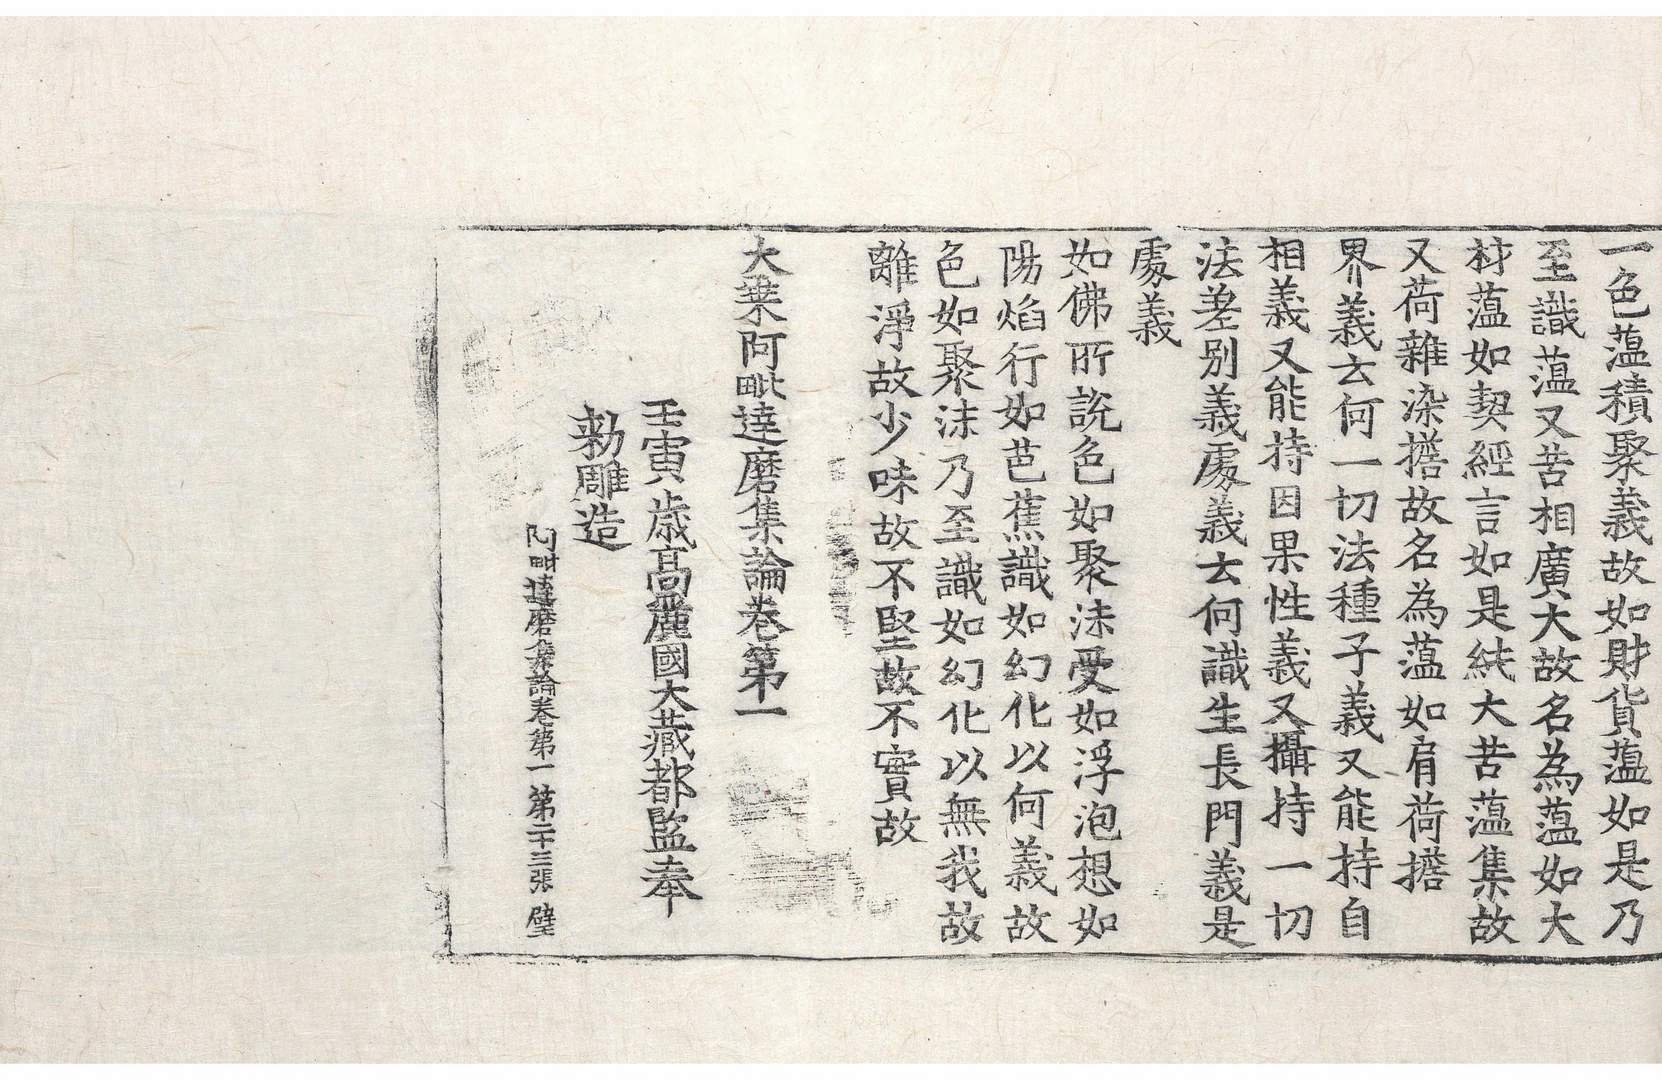 一色薀積聚義故如財貨薀如是乃
至識薀又苦相廣大故名為薀如大
材薀如契經言如是純大苦薀集故
又荷雜染擔故名為薀如肩荷擔
界義云何一切法種子義又能持自
相義又能持因果性義又攝持一切
法差别義處義云何識生長門義是
處義
如佛所說色如聚沫受如浮泡想如
陽焰行如芭蕉識如幻化以何義故
色如聚沫乃至識如幻化以無我故
離淨故少味故不堅故不實故
大乗阿毗達磨集論卷第一
壬寅歳髙麗國大藏都監奉
勅雕造
阿毗達磨集論卷第一 第二十三張 璧